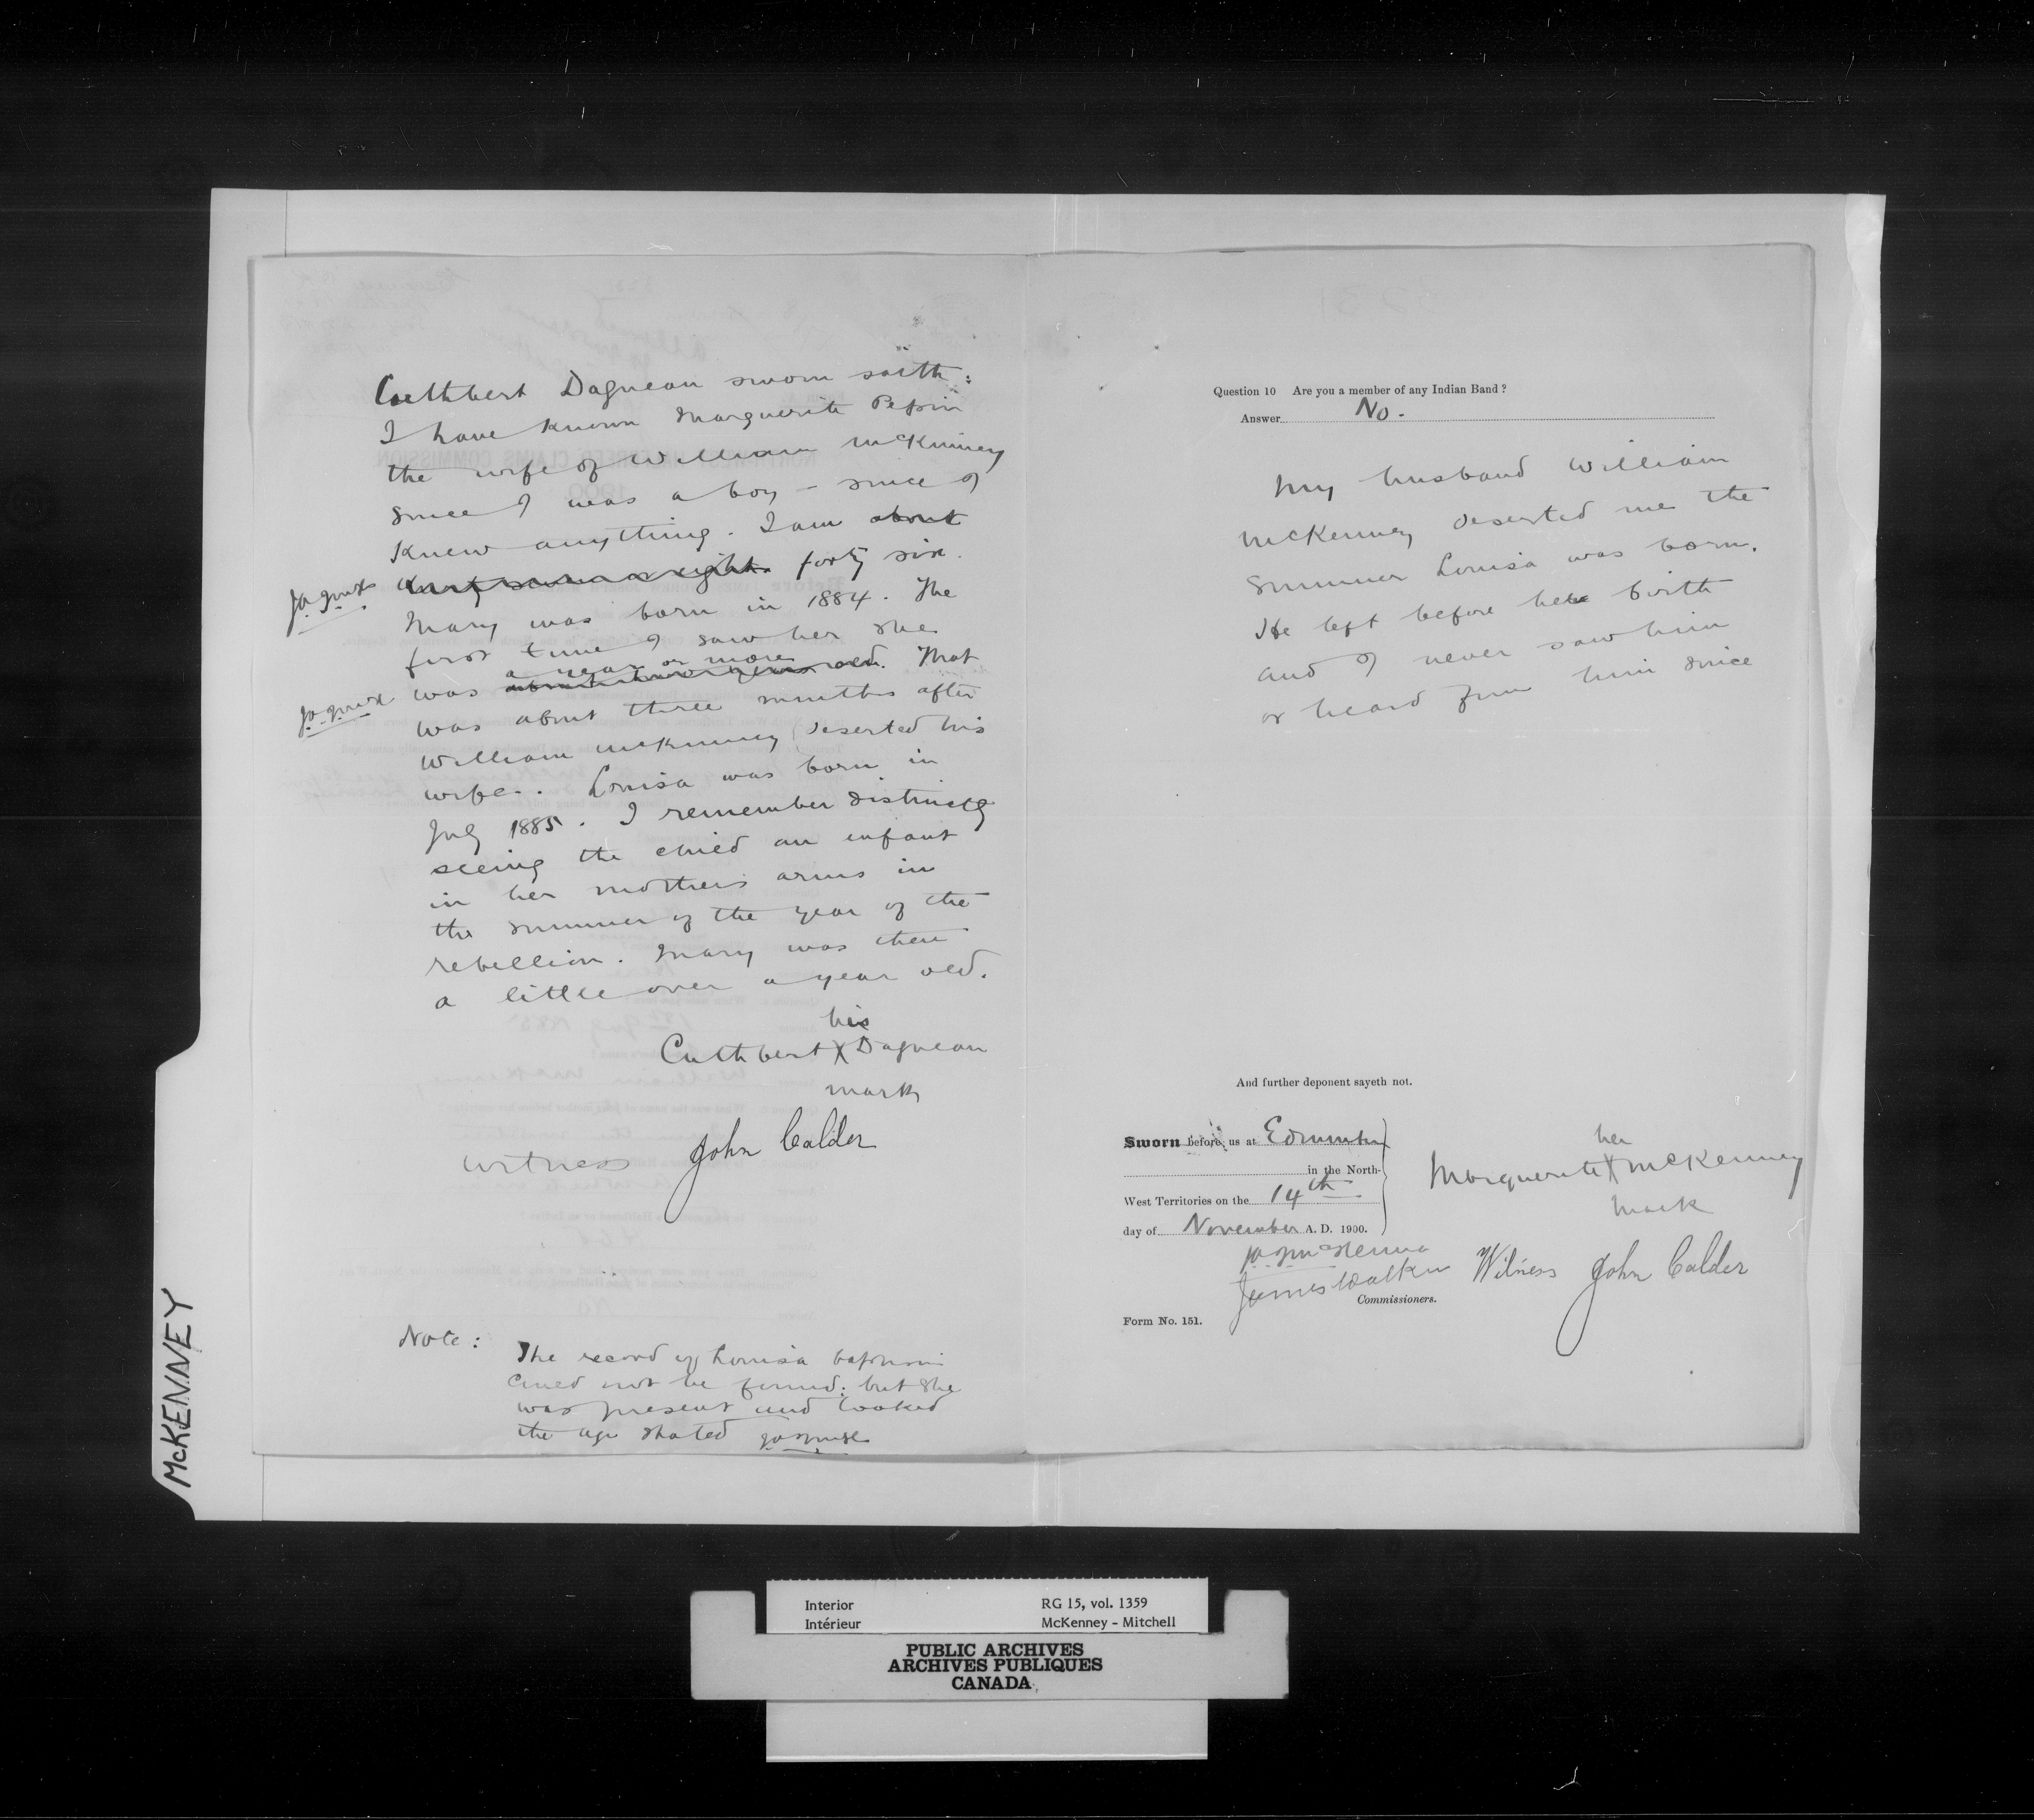 Cuthbert Dagneau sworn saith:
I have known Marguerite Pepin
the wife of William McKinney
since I was a boy - since I
knew anything. I am about
forty six.
Mary was born in 1884. The
first time I saw her she
a year or more
was about two years old. That
was about three months after
William McKinney deserted his
wife. Louisa was born in
July 1885. I remember distinctly
seeing the child an infant
in her mothers arms in
the summer of the year of the
rebellion. Mary was then
a little over a year old.
his
Cuthbert X Dagneau
mark
witness John Calder
Note:
The record of Louisa baptism
could not be found: but she
was present and looked
the age stated
Question 10 Are you a member of any Indian Band?
Answer No.
My husband William
McKenney deserted me the
summer Louisa was born.
He left before her birth
and I never saw him
or heard from him since
And further deponent sayeth not.
Sworn before us at Edmonton
in the North-
West Territories on the 14th
day of November A. D. 1900.
her
Marguerite X McKenney
mark
J A J McKenna
James Walker
Witness John Calder
Commissioners.
Form No. 151.
McKENNEY
Interior RG 15, vol. 1359
Intérieur McKenney - Mitchell
PUBLIC ARCHIVES
ARCHIVES PUBLIQUES
CANADA